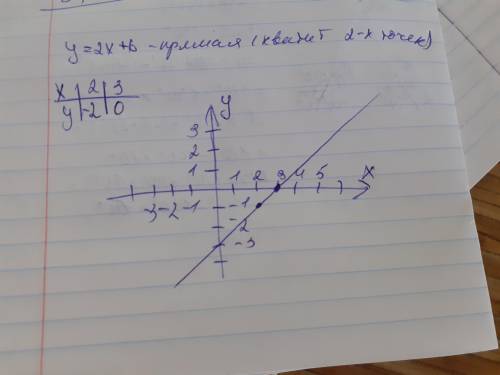 y=2x+b -прямая (хватит 2-х точек)
x 2 3
y -2 0
y
3
2
1
-3 -2 -1 1 2 3 4 5 x
-1
-2
-3